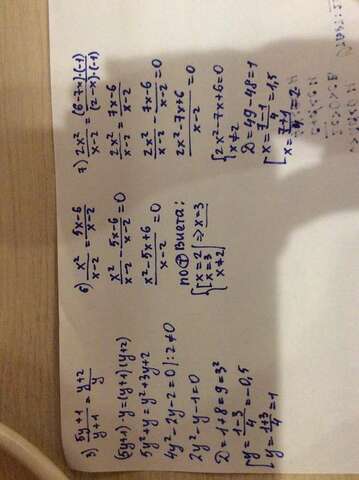 3) (5y+1)/(y+1) = (y+2)/y
(5y+1)·y=(y+1)(y+2)
5y²+y=y²+3y+2
4y²-2y-2=0 |:2≠0
2y²-y-1=0
D=1+8=9=3²
[y=(1-3)/4=-0,5
[y=(1+3)/4=1
6) x²/(x-2) = (5x-6)/(x-2)
x²/(x-2) - (5x-6)/(x-2) = 0
(x²-5x+6)/(x-2) = 0
по Т Виета:
{[x=2
[x=3 => x=3
x≠2
7) 2x²/(x-2) = (6-7x)·(-1)/(2-x)·(-1)
2x²/(x-2) = (7x-6)/(x-2)
2x²/(x-2) - (7x-6)/(x-2) = 0
(2x²-7x+6)/(x-2) = 0
{2x²-7x+6=0
x≠2
D=49-48=1
[x=(7-1)/4=1,5
[x=(7+1)/4=2